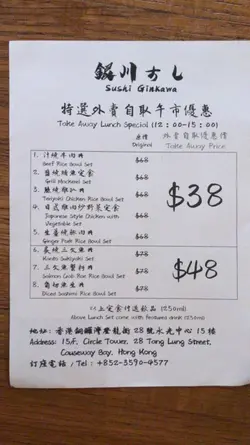 銀川すし
Sushi Ginkawa
特選外賣自取午市優惠
Take Away Lunch Special (12:00-15:00)
原價 外賣自取優惠價
Original Take Away Price
1. 汁燒牛肉丼 $68
Beef Rice Bowl Set
2. 鹽燒鯖魚定食 $68
Grill Mackerel Set
3. 雞扒丼 $68
Teriyaki Chicken Rice Bowl Set
4. 日式雞肉炒野菜定食 $68
Japanese Style Chicken with
Vegetable Set
5. 生薑豬肉丼 $68
Ginger Pork Rice Bowl Set
$38
6. 三文魚丼 $78
Set
7. 三文魚蟹籽丼 $78
Salmon Crab Roe Rice Bowl Set
8. 角切魚生丼 $78
Diced Sashimi Rice Bowl Set
$48
以上定食付送飲品 (250ml)
Above Lunch Set come with featured drink (250ml)
地址: 香港銅鑼灣登龍街28號永光中心15樓
Address: 15/F, Circle Tower, 28 Tang Lung Street,
Causeway Bay, Hong Kong
訂座電話 / Tel: +852-3590-4577